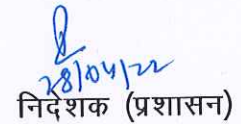 28/04/22
निदेशक (प्रशासन)